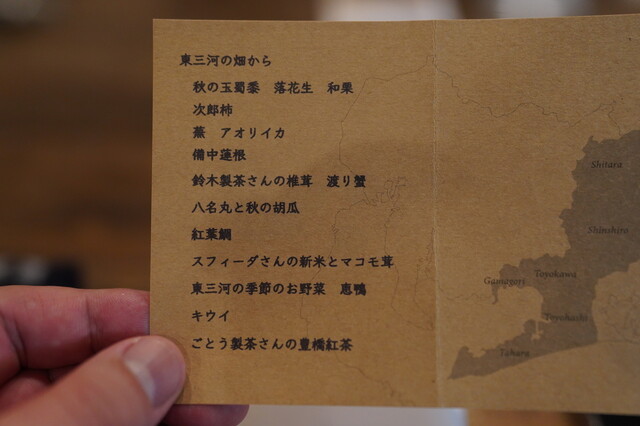 東三河の畑から
秋の玉蜀黍　落花生　和栗
次郎柿
蕪　アオリイカ
備中蓮根
鈴木製茶さんの椎茸　渡り蟹
八名丸と秋の胡瓜
紅葉鯛
スフィーダさんの新米とマコモ茸
東三河の季節のお野菜　恵鴨
キウイ
ごとう製茶さんの豊橋紅茶
Shitara
Shinshiro
Toyokawa
Gamagori
Toyohashi
Tahara